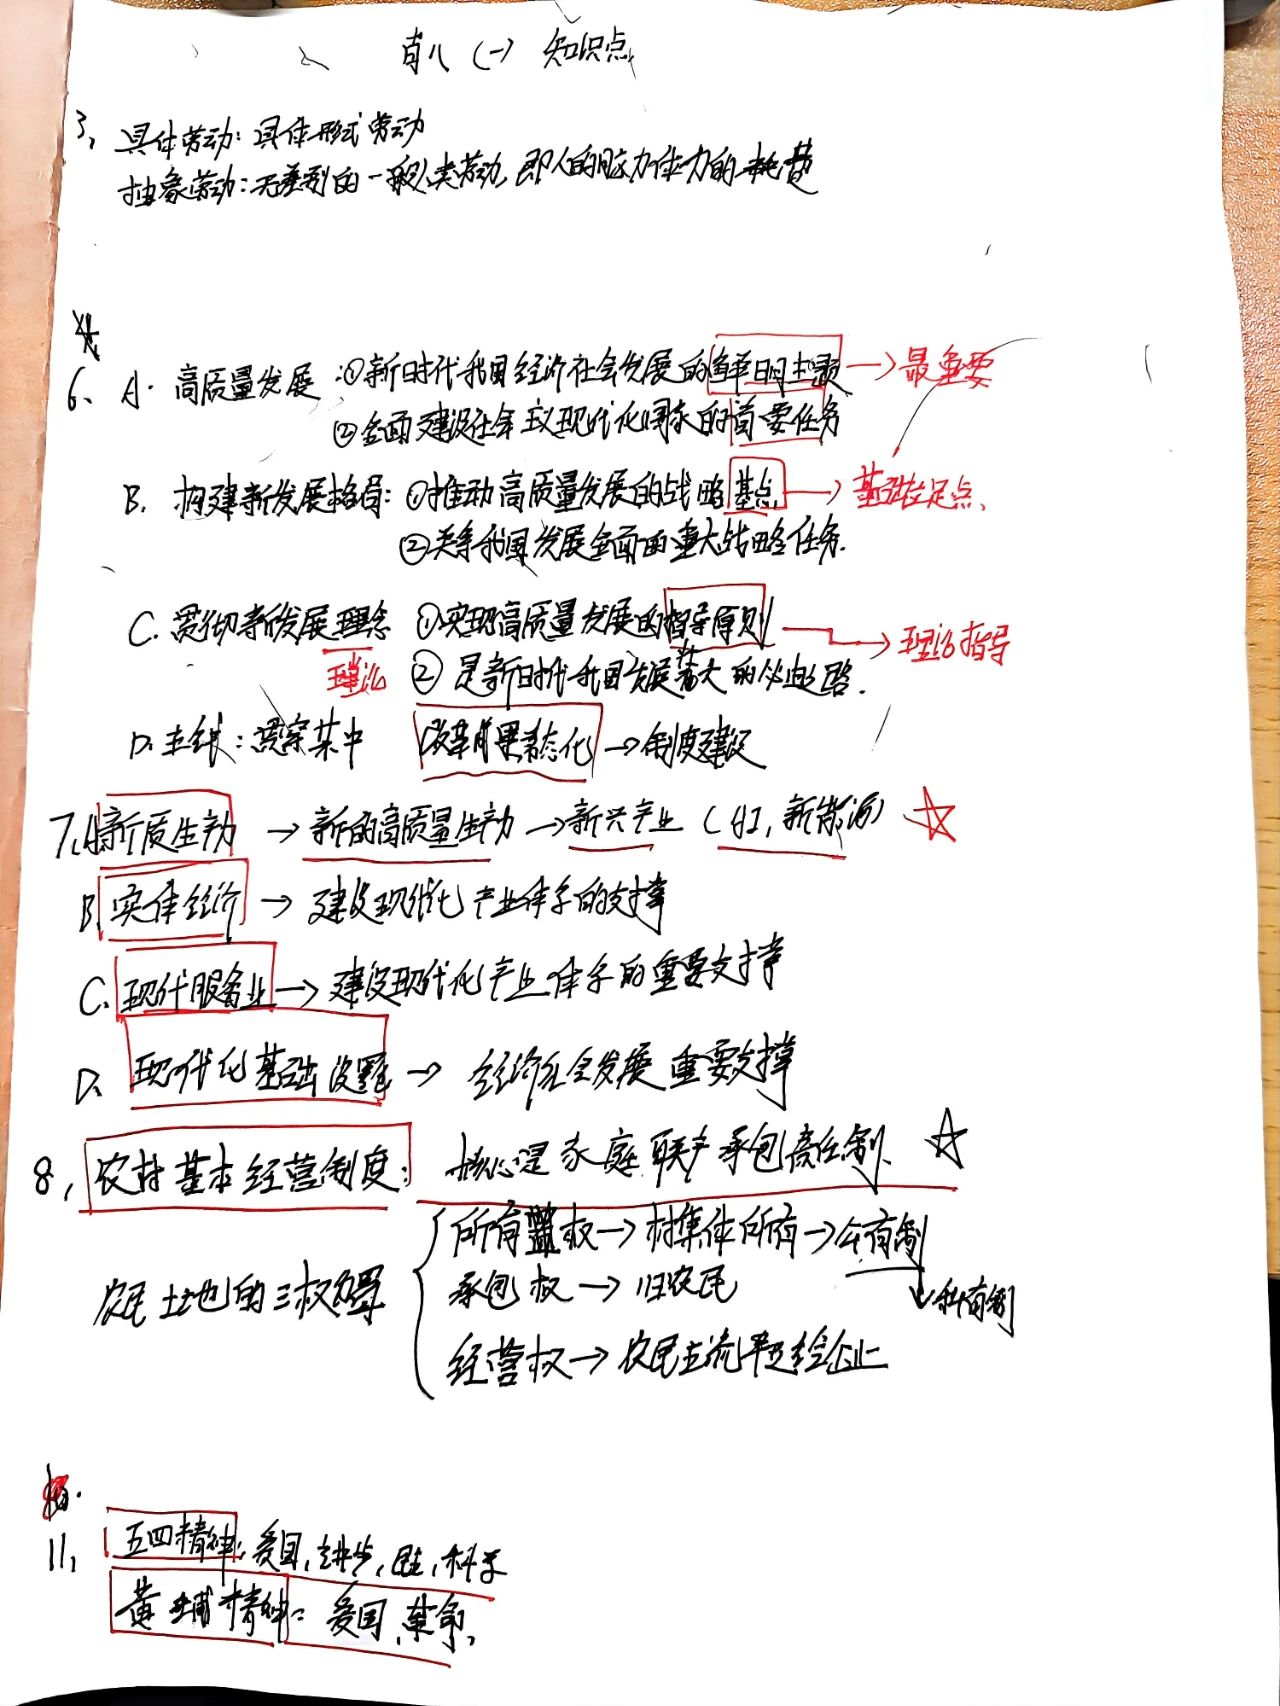 肖八（一）知识点
3, 具体劳动：具体形式劳动
抽象劳动：无差别的一般人类劳动，即人的脑力体力的耗费
6、A. 高质量发展：①新时代我国经济社会发展的鲜明主题 → 最重要
②全面建设社会主义现代化国家的首要任务
B. 构建新发展格局：①推动高质量发展的战略基点 → 基础立足点、
②关系我国发展全面的重大战略任务.
C. 贯彻新发展理念 ①实现高质量发展的指导原则 → 理论指导
理论 ② 是新时代我国发展壮大的必由之路.
D. 主线：贯穿其中 改革成果常态化 → 制度建设
7, A新质生产力 → 新的高质量生产力 → 新兴产业（AI，新能源）
B. 实体经济 → 建设现代化产业体系的支撑
C. 现代服务业 → 建设现代化产业体系的重要支撑
D. 现代化基础设施 → 经济社会发展重要支撑
8, 农村基本经营制度：核心是家庭联产承包责任制.
所有权 → 村集体所有 → 公有制
农民土地的三权分置 承包权 → 旧农民 ↓私有制
经营权 → 农民主流转给企业
11, 五四精神：爱国，进步，民主，科学
黄埔精神：爱国、革命，